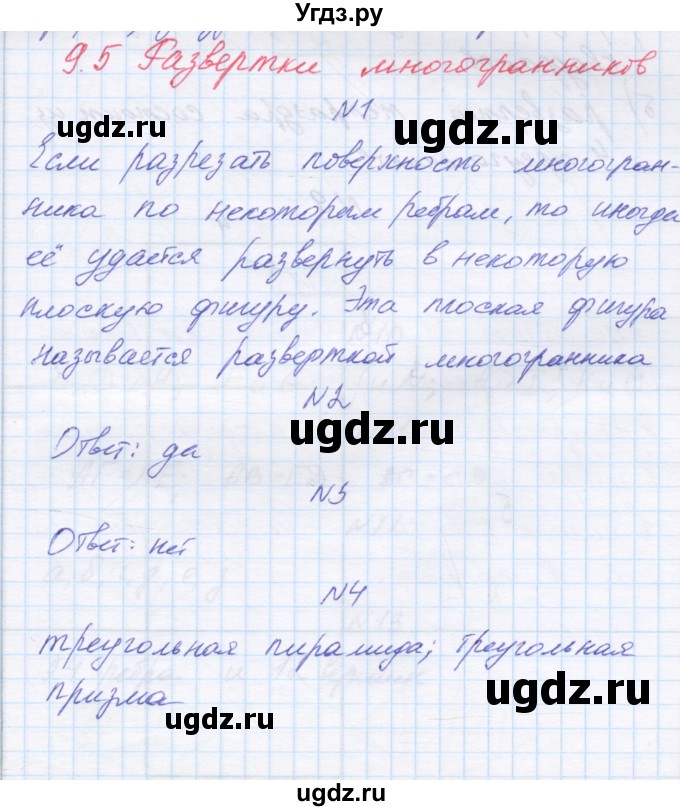 Угдз.ру
9.5 Развертки многогранников
N1
ugdz.ru ugdz.ru
Если разрезать поверхность многогран-
ника по некоторым ребрам, то иногда
её удается развернуть в некоторую
плоскую фигуру. Эта плоская фигура
ugdz.ru
называется разверткой многогранника
N2
ugdz.ru
Ответ: да
ugdz.ru
N3
Ответ: нет
ugdz.ru
N4
треугольная пирамида; треугольная
призма
ugdz.ru
ugdz.ru
ugdz.ru